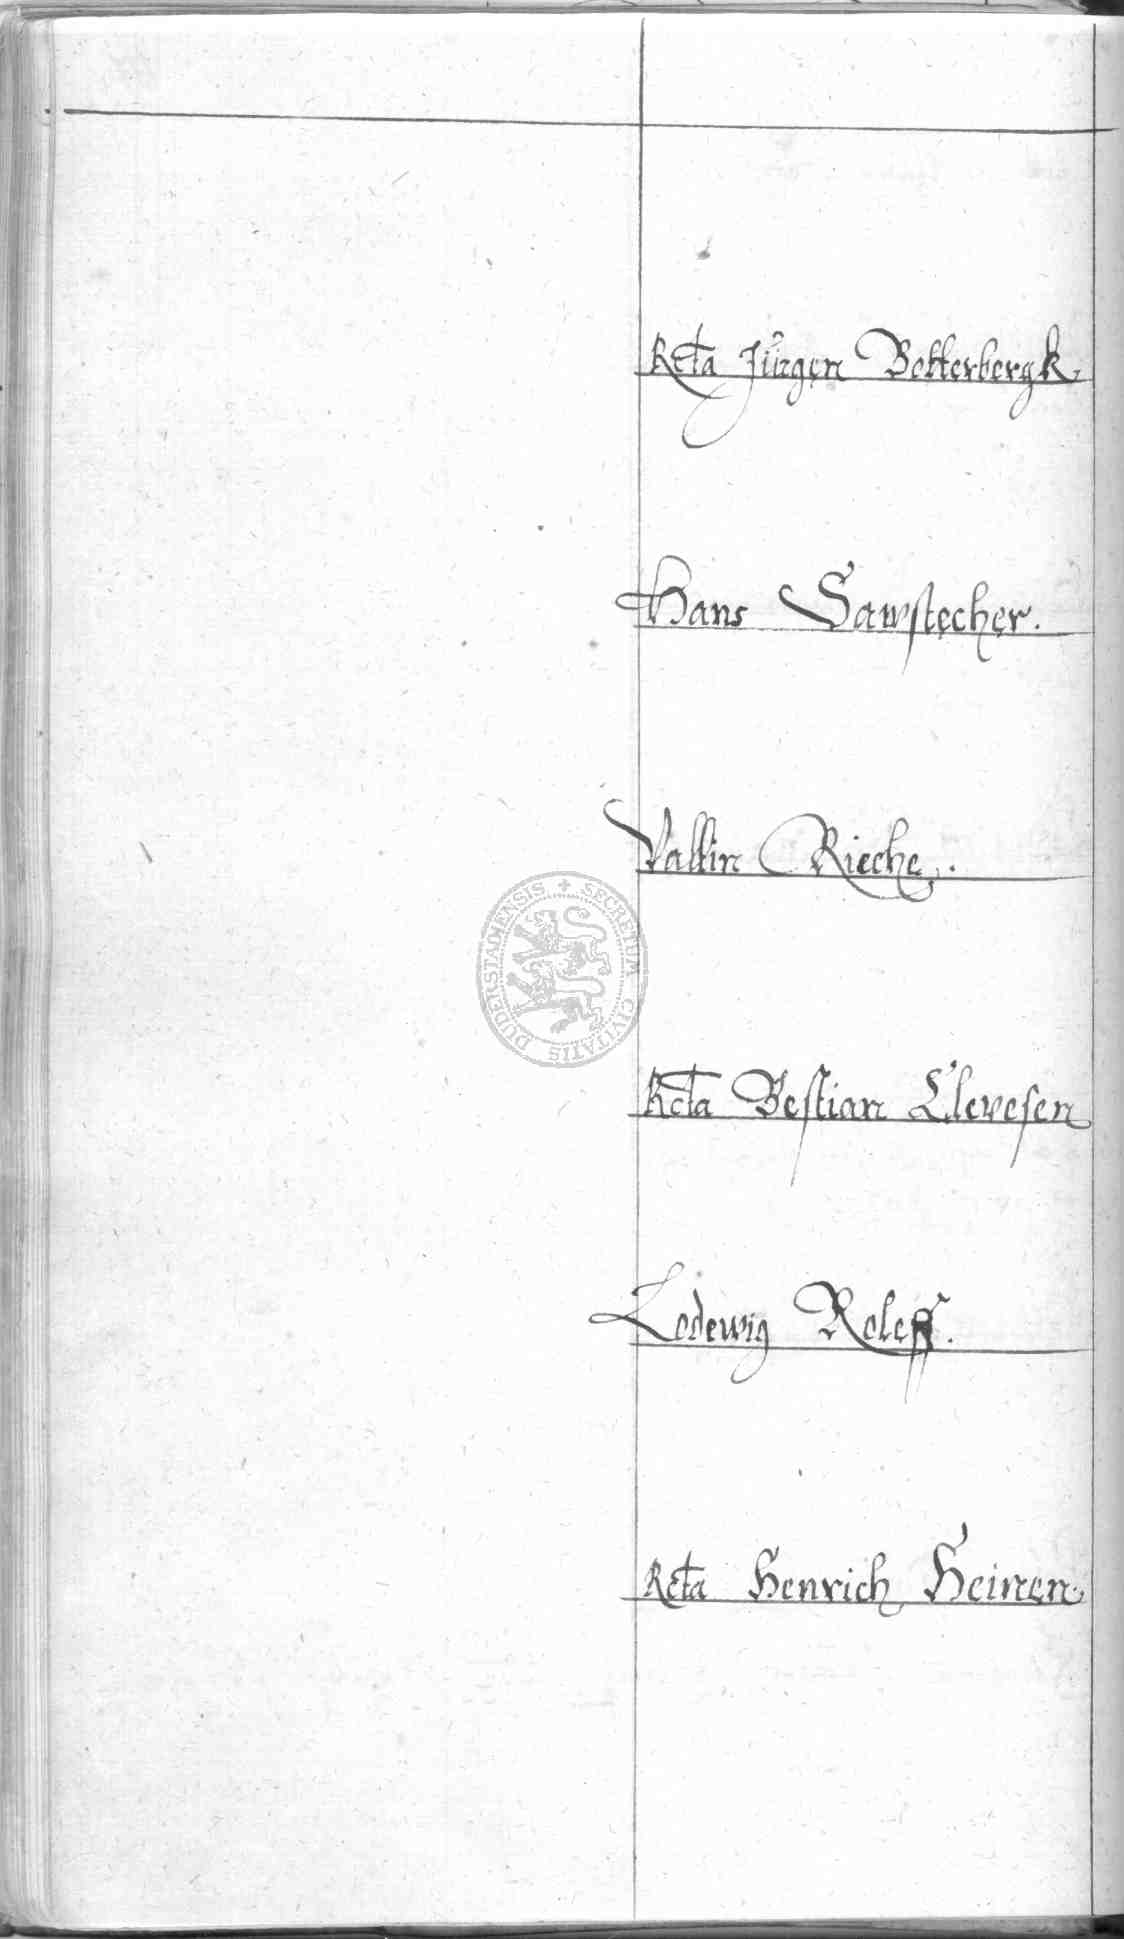 Reta Jürgen Betterbergk.
Hans Sawstecher.
Valtin Rieche.
SECRETUM CIVITATIS DUDERSTADIENSIS
Reta Bestian Clevesen
Lodewig Roleff.
Reta Henrich Heinen.